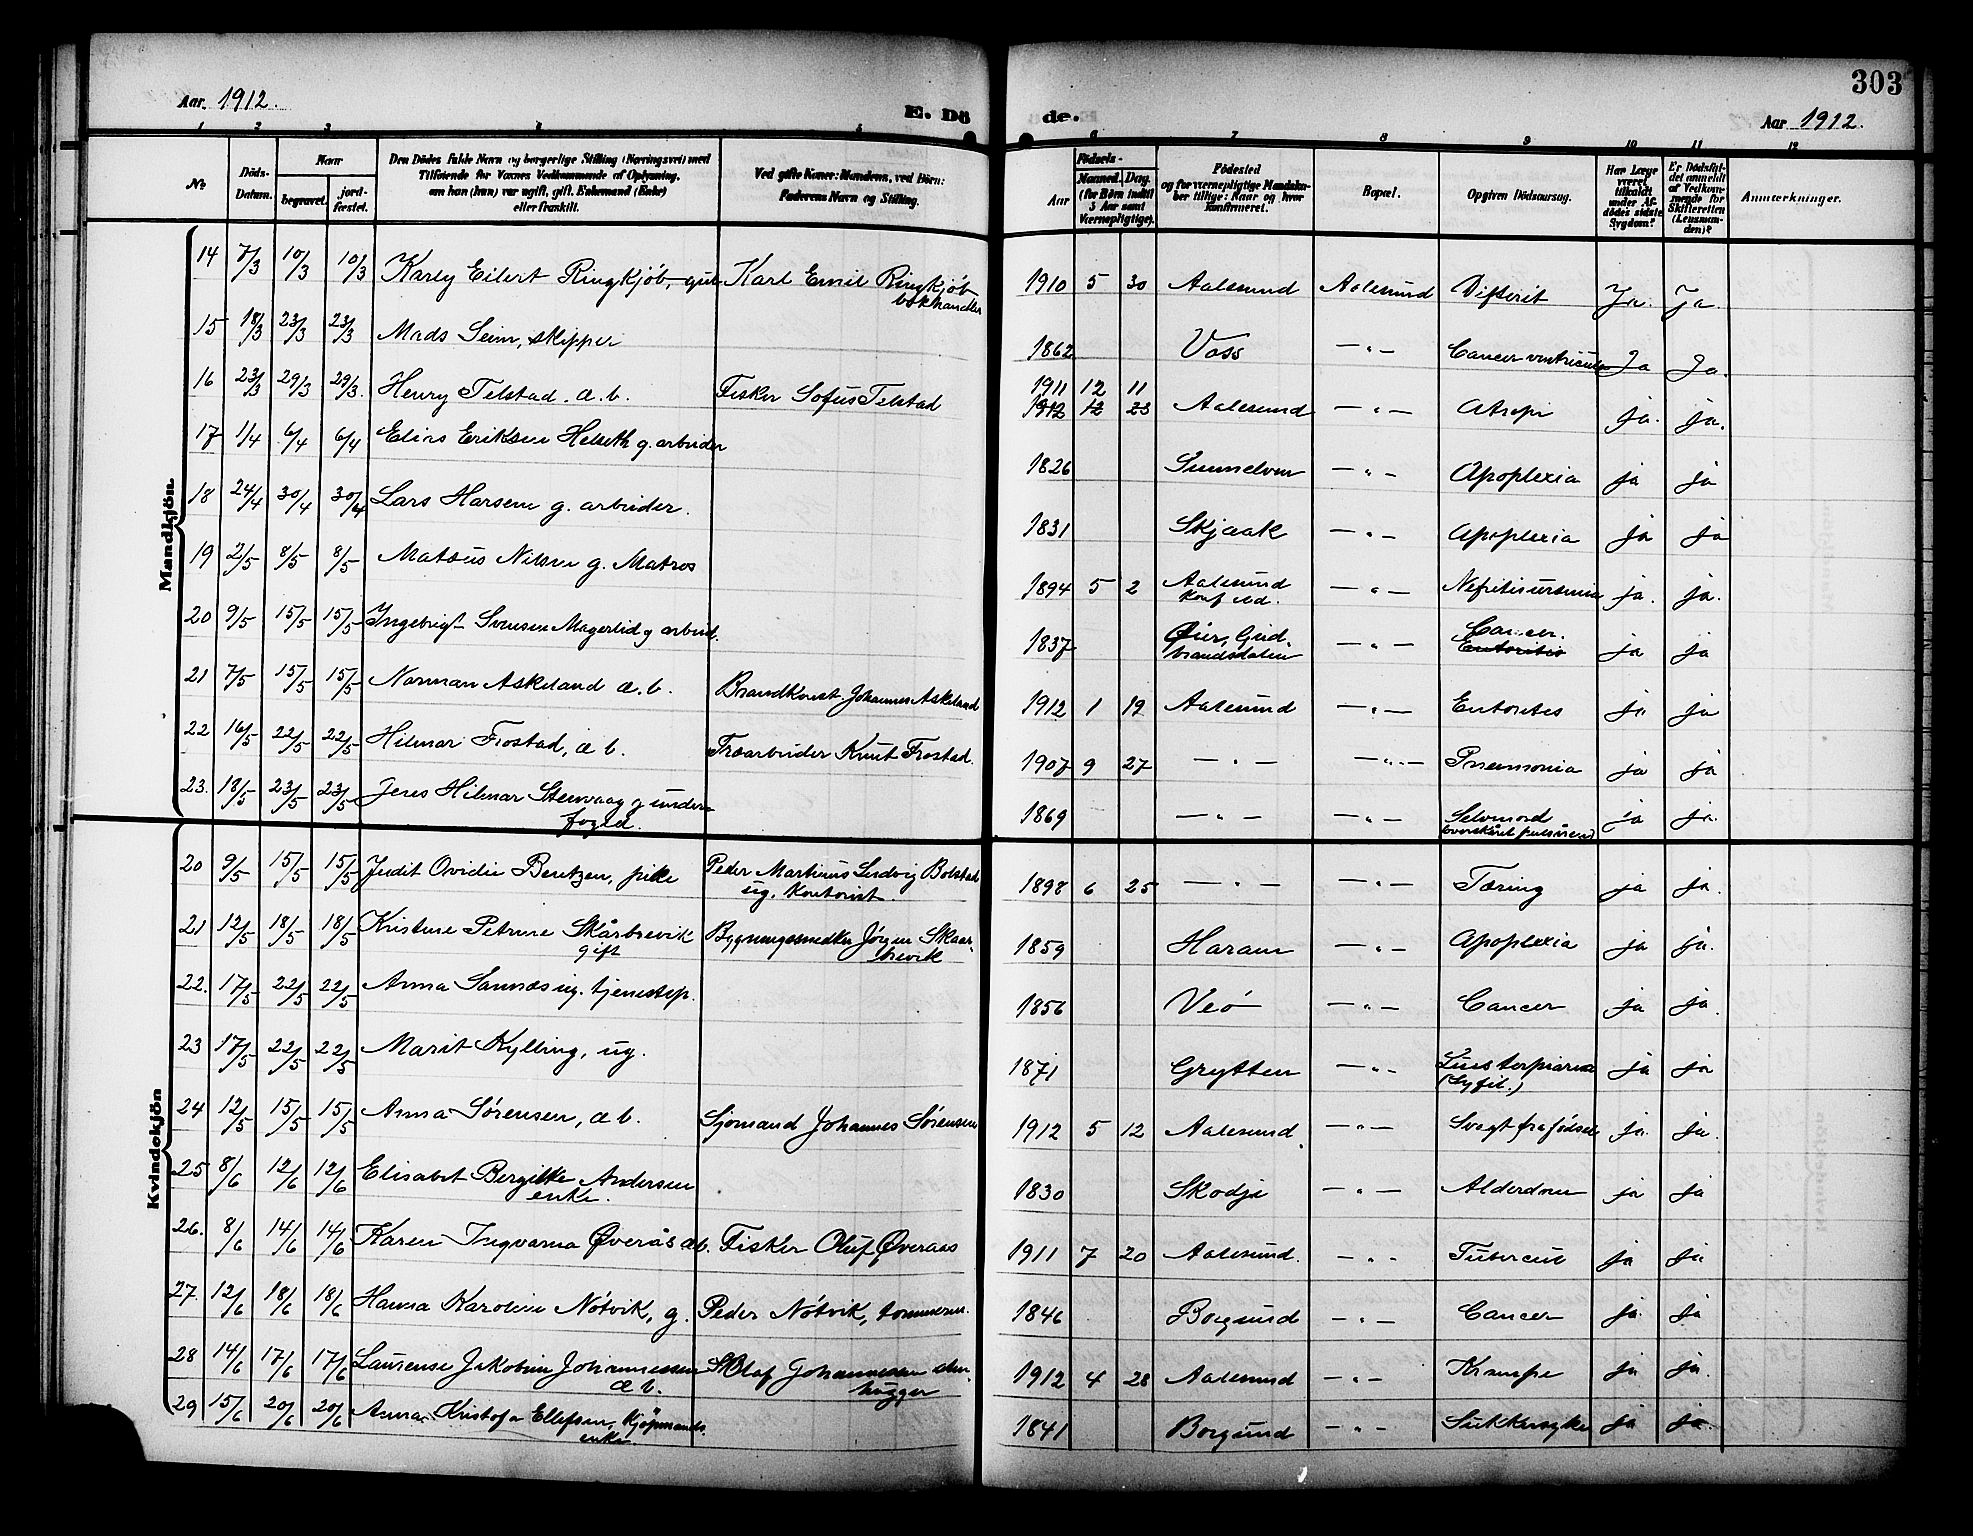 303
Aar 1912.
E. Dö
de.
Aar 1912.
1 2 3 4 5 6 7 8 9 10 11 12
No
Döds-Datum.
Naar
begravet.
jord-fæstet.
Den Dödes fulde Navn og borgerlige Stilling (Næringsvei) med
Tilföiende for Voxnes Vedkommende af Oplysning,
om han (hun) var ugift, gift, Enkemand (Enke)
eller fraskilt.
Ved gifte Koner: Mandens, ved Börn:
Faderens Navn og Stilling.
Födsels-
Aar
Maaned. Dag.
(for Börn indtil
5 Aar samt
Værnepligtige).
Födested
og for værnepligtige Mandskaber tillige: Naar og hvor
konfirmeret.
Bopæl.
Opgiven Dödsaarsag.
Har Læge været tilkaldt under Afdödes sidste Sygdom?
Er Dödsfaldet anmeldt af Vedkommende for Skifteretten (Lensmanden)?
Anmærkninger.
Mandkjön.
14 7/3 10/3 10/3 Karly Eilert Ringkjöb, gut Karl Emil Ringkjöb bokhandler 1910 5 30 Aalesund Aalesund Difterit Ja. Ja.
15 18/3 23/3 23/3 Mads Seim, skipper 1862 Voss — " — Cancer ventriculi Ja Ja.
16 23/3 29/3 29/3. Henry Telstad. æ. b. Fisker Sofus Telstad 1911 12 11
1912 12 23 Aalesund — " — Atropi ja. ja.
17 1/4 6/4 6/4 Elias Eriksen Helseth g. arbeider 1826 Sunnelven — " — Apoplexia ja ja
18 24/4 30/4 30/4 Lars Harsem g. arbeider. 1831 Skjaak — " — Apoplexia ja ja
19 2/5 8/5 8/5 Matæus Nilsen g. Matros 1894 5 2 Aalesund — " — Nefritis uræmia ja. ja.
20 9/5 15/5 15/5 Ingebrigt Svensen Magerlid g arbeid. 1837 Øier, Gudbrandsdalen — " — Cancer. Enteritis ja ja
21 7/5 15/5 15/5 Norman Askeland æ. b. Brandkonst. Johannes Askeland 1912 1 19 Aalesund — " — Enterites ja ja
22 16/5 22/5 22/5 Hilmar Frostad, æ b. Træarbeider Knut Frostad. 1907 9 27 — " — — " — Pneumonia ja ja
23. 18/5 23/5 23/5 Jens Hilmar Stenvaag g underfoged. 1869 — " — — " — Selvmord ja ja.
Kvindekjön
20 9/5 15/5 15/5 Judit Ovidie Bentzen, pike Peder Martinus Ludvig Bolstad ug. kontorist. 1898 6 25 — " — — " — Tæring ja ja.
21 12/5 18/5 18/5 Kristine Petrine Skårbrevik gift Bygningssnedker Jørgen Skaarbrevik 1859 Haram — " — Apoplexia ja ja.
22. 17/5 22/5 22/5 Anna Sannæs ug. tjenestep. 1856 Veö — " — Cancer ja ja.
23 17/5 22/5 22/5 Marit Kylling, ug. 1871 Grytten — " — (Syfil.) ja ja
24 12/5 15/5 15/5 Anna Sørensen, æ b. Sjømand Johannes Sørensen 1912 5 12 Aalesund. — " — Svagt fra fødsel ja. ja.
25 8/6 12/6 12/6 Elisabet Bergitte Andersen enke. 1830 Skodje — " — Alderdom ja ja
26. 8/6 14/6 14/6 Karen Ingvarna Øverås æ b. Fisker Oluf Øveraas 1911 7 20 Aalesund. — " — Tubercul ja ja
27. 12/6 18/6 18/6 Hanna Karoline Nötvik, g. Peder Nötvik, tømmerm. 1846 Borgund — " — Cancer ja. ja
28 14/6 17/6 17/6 Laurense Jakobine Johannessen æ b. Olaf Johannessen stenhugger 1912 4 28 Aalesund — " — Krampe ja ja.
29 15/6 20/6 20/6 Anna Kristofa Ellefsen, Kjøpmands enke. 1841 Borgund — " — Sukkersyke ja ja